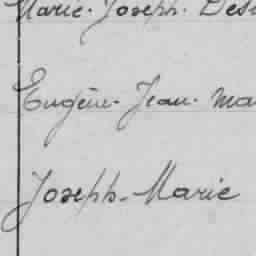 Marie. Joseph. Des
Eugène. Jean. Ma
Joseph. Marie